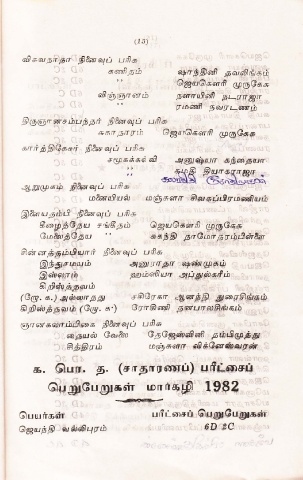 (15)
விசுவநாதா நினைவுப் பரிசு
கணிதம் ஷாந்தினி தவலிங்கம்
" ஜெயகௌரி முருகேசு
விஞ்ஞானம் நளாயினி நடராஜா
" ரமணி நவரட்ணம்
திருஞானசம்பந்தர் நினைவுப் பரிசு
சுகாதாரம் ஜெயகௌரி முருகேசு
கார்த்திகேசர் நினைவுப் பரிசு
சமூகக்கல்வி அனுஷ்யா கந்தையா
" சுமதி தியாகராஜா
ஆறுமுகம் நினைவுப் பரிசு
மனையியல் மஞ்சுளா சிவசுப்பிரமணியம்
இளையதம்பி நினைவுப் பரிசு
கீழைத்தேய சங்கீதம் ஜெயகௌரி முருகேசு
மேனாத்தேய " சுகந்தி தாமோதரம்பிள்ளை
சின்னத்தம்பியார் நினைவுப் பரிசு
இந்துசமயம் அனுராதா ஷண்முகம்
இஸ்லாம் ஹம்ஸியா அப்துல்கரீம்
கிறிஸ்த்தவம்
(றோ. க.) அல்லாதது சகிரேகா ஆனந்தி துரைசிங்கம்
கிறிஸ்தவம் (றோ. க) ரோகினி தனபாலசிங்கம்
ஞானகலாம்பிகை நினைவுப் பரிசு
தையல் வேலை தேஜஸ்வினி தம்பிமுத்து
சித்திரம் மஞ்சுளா விக்னேஸ்வரன்
க. பொ. த. (சாதாரணப்) பரீட்சைப்
பெறுபேறுகள் மார்கழி 1982
பெயர்கள் பரீட்சைப் பெறுபேறுகள்
ஜெயந்தி வல்லிபுரம் 6D 2C